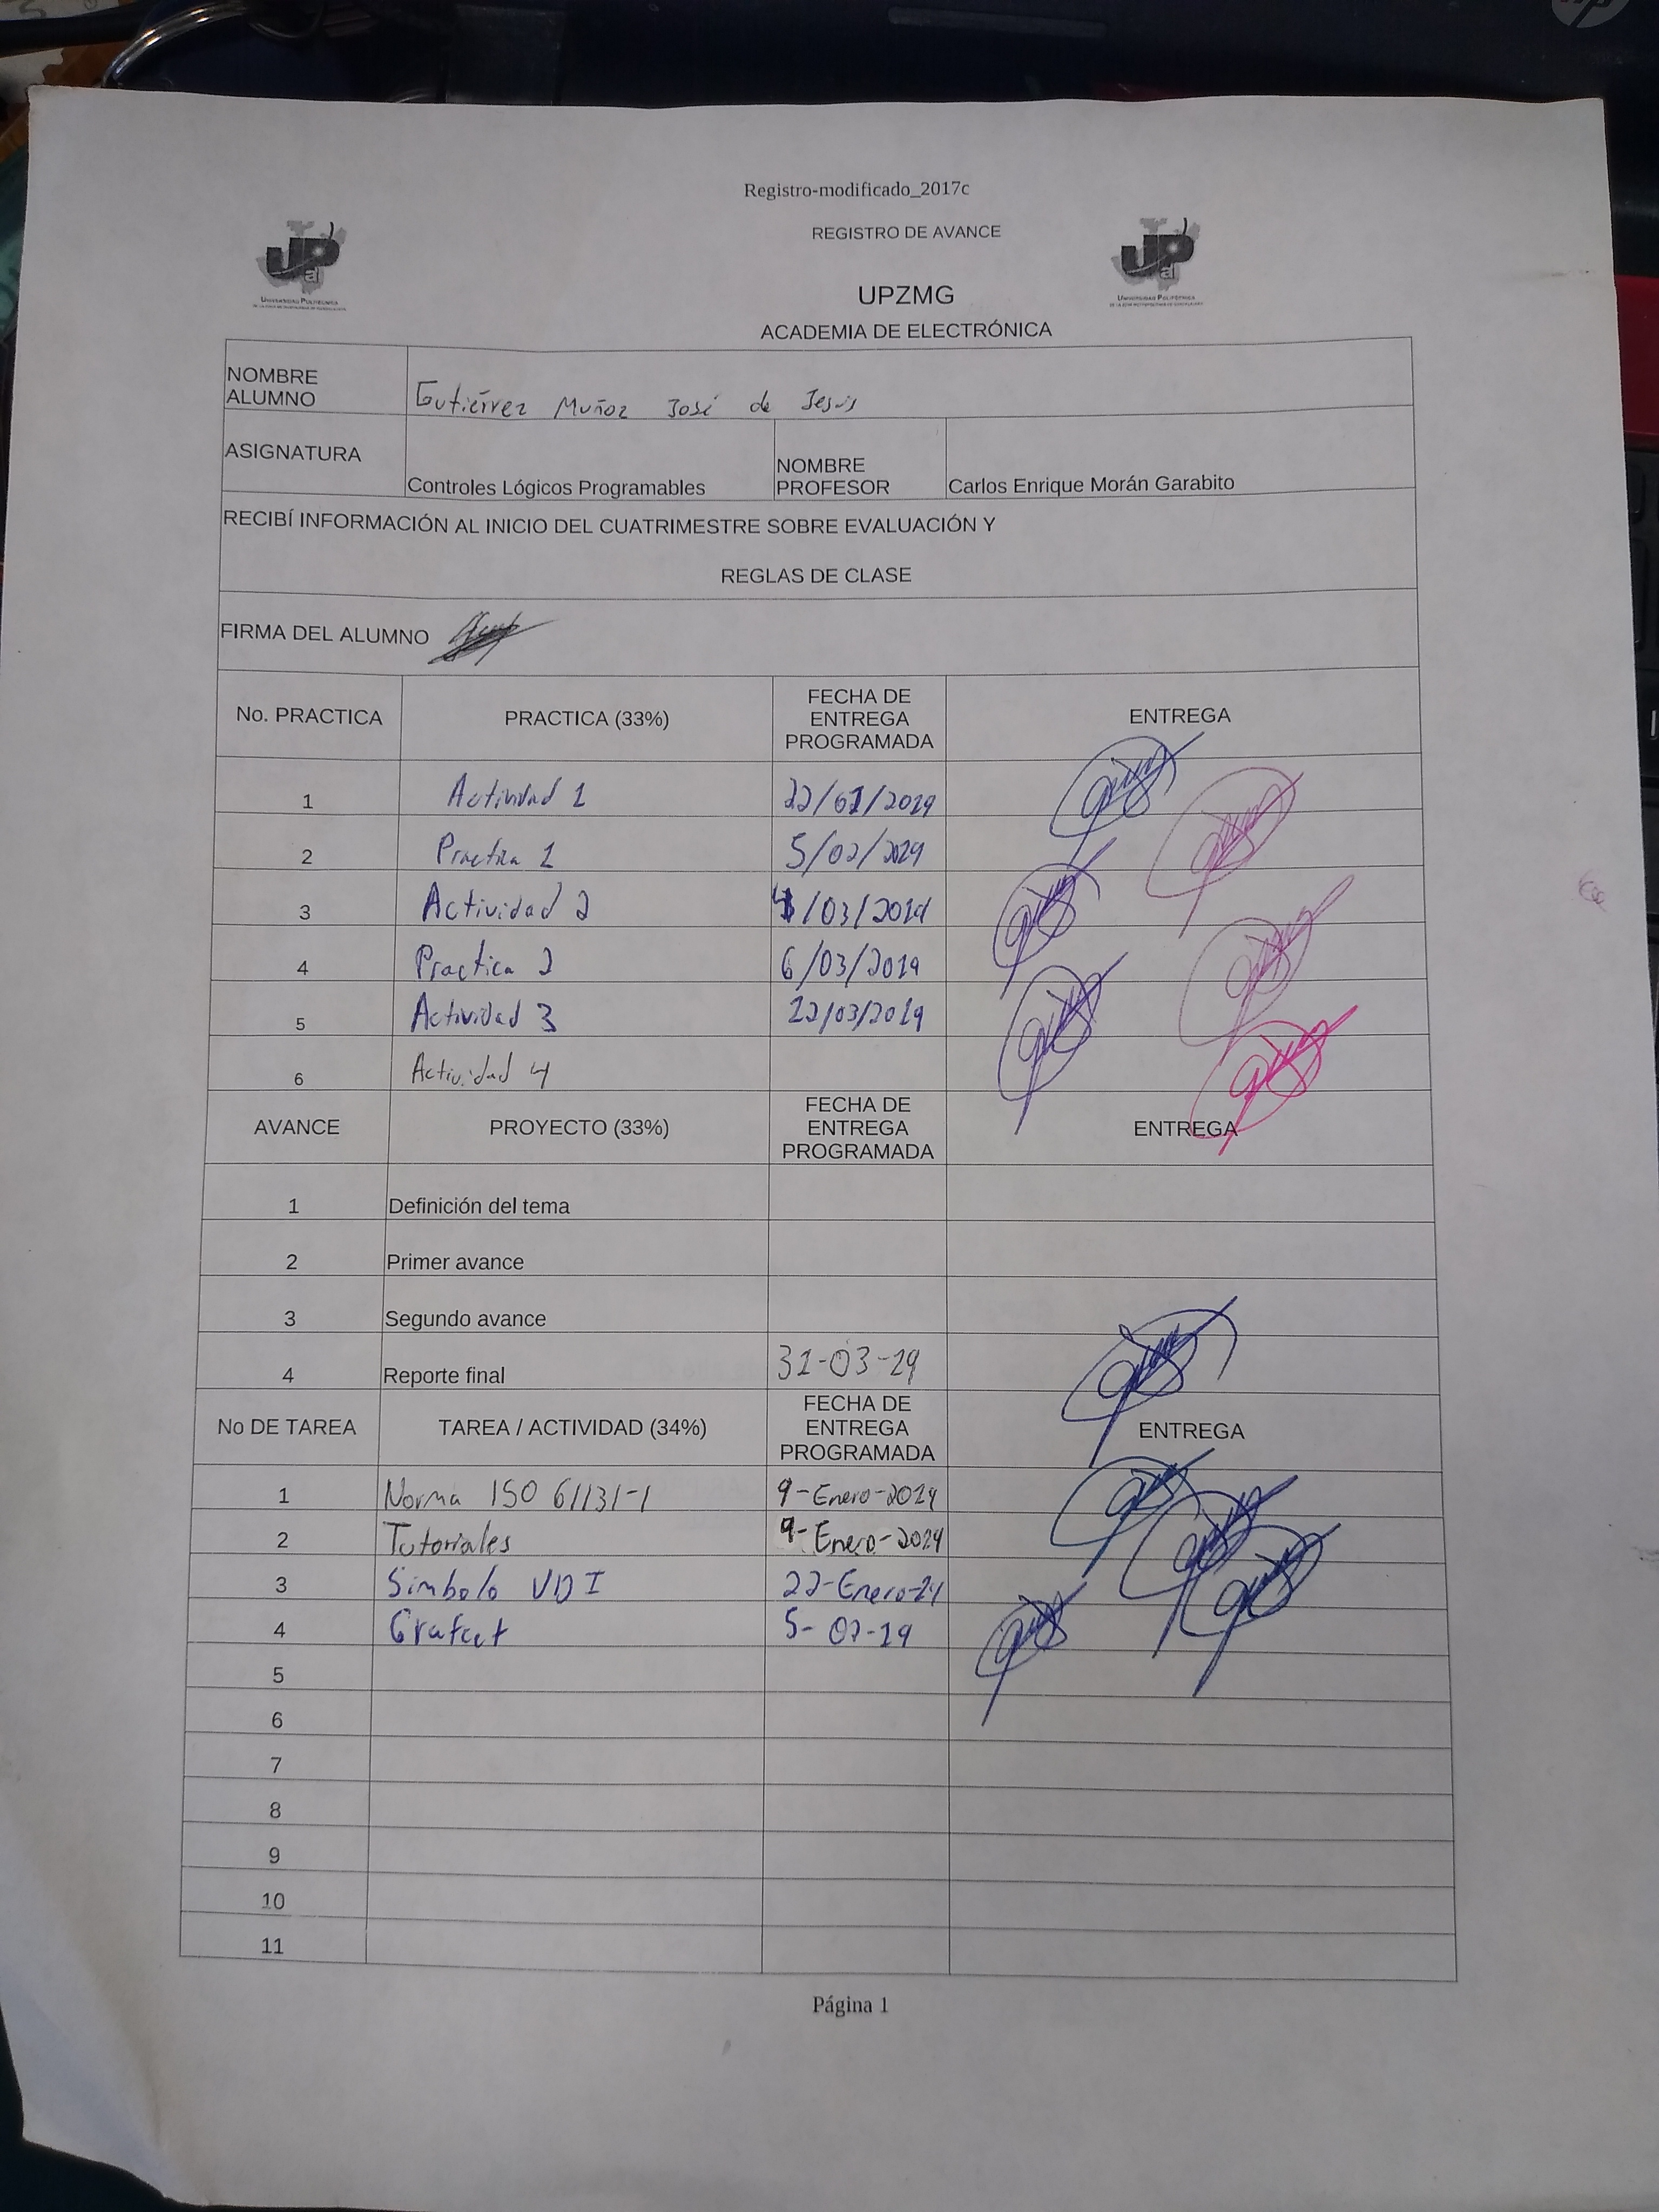 Registro-modificado_2017c
REGISTRO DE AVANCE
UPZMG
ACADEMIA DE ELECTRÓNICA
NOMBRE ALUMNO Gutiérrez Muñoz José de Jesús
ASIGNATURA Controles Lógicos Programables NOMBRE PROFESOR Carlos Enrique Morán Garabito
RECIBÍ INFORMACIÓN AL INICIO DEL CUATRIMESTRE SOBRE EVALUACIÓN Y
REGLAS DE CLASE
FIRMA DEL ALUMNO
No. PRACTICA PRACTICA (33%) FECHA DE ENTREGA PROGRAMADA ENTREGA
1 Actividad 1 22/01/2019
2 Practica 1 5/02/2019
3 Actividad 2 /03/2019
4 Practica 2 6/03/2019
5 Actividad 3 12/03/2019
6 Actividad 4
AVANCE PROYECTO (33%) FECHA DE ENTREGA PROGRAMADA ENTREGA
1 Definición del tema
2 Primer avance
3 Segundo avance
4 Reporte final 31-03-19
No DE TAREA TAREA / ACTIVIDAD (34%) FECHA DE ENTREGA PROGRAMADA ENTREGA
1 Norma ISO 61131-1 9-Enero-2019
2 Tutoriales 9-Enero-2019
3 Simbolo VDI 22-Enero-19
4 Grafcet 5-02-19
5
6
7
8
9
10
11
Página 1